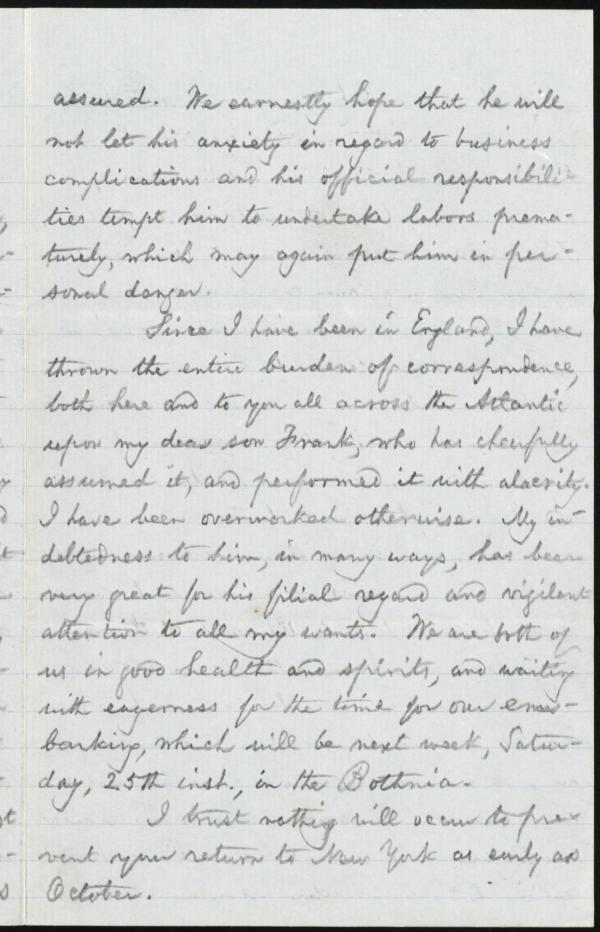 assured. We earnestly hope that he will
not let his anxiety in regard to business
complications and his official responsibili-
ties tempt him to undertake labors prema-
turely, which may again put him in per-
sonal danger.
Since I have been in England, I have
thrown the entire burden of correspondence,
both here and to you all across the Atlantic
upon my dear son Frank, who has cheerfully
assumed it, and performed it with alacrity.
I have been overworked otherwise. My in-
debtedness to him, in many ways, has been
very great for his filial regard and vigilant
attention to all my wants. We are both of
us in good health and spirits, and waiting
with eagerness for the time for our em-
barking, which will be next week, Satur-
day, 25th inst., in the Bothnia.
I trust nothing will occur to pre-
vent your return to New York as early as
October.